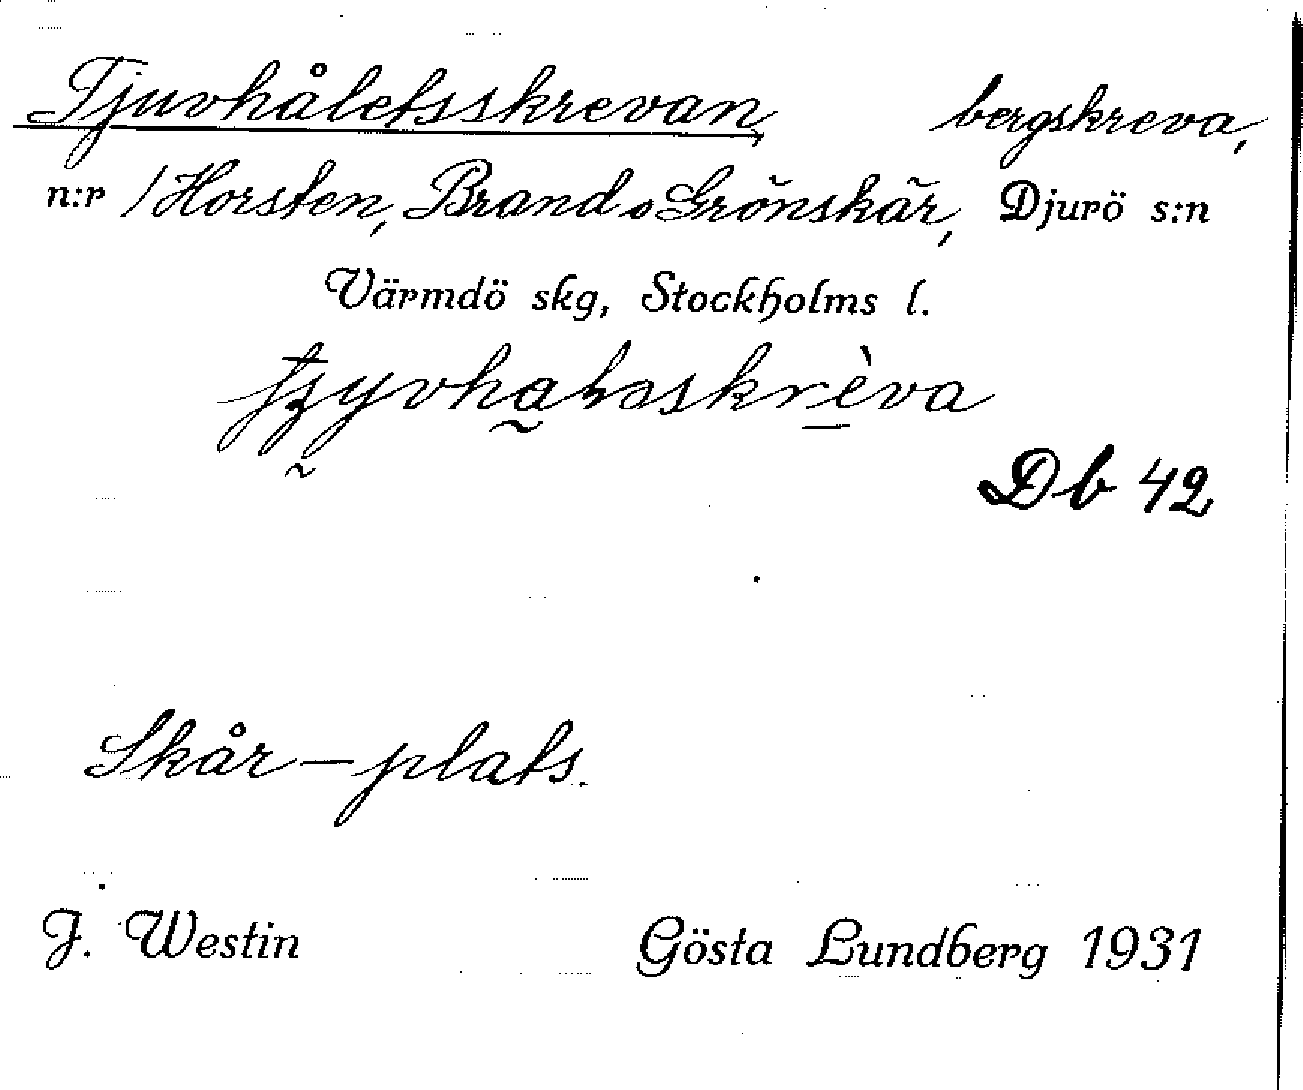 Tjuvhåletsskrevan bergskreva,
n:r /Horsten, Brand o Grönskär, Djurö s:n
Värmdö skg, Stockholms l.
Db 42
Skår-plats.
J. Westin Gösta Lundberg 1931